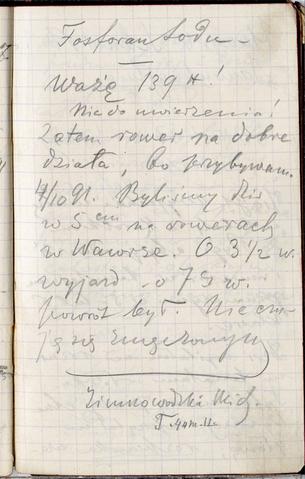 Fosforan Sodu –
Ważę 139 H!
Nie do uwierzenia!
Zatem rower na dobre
działa, bo przybywam.
4/10 91. Byliśmy dziś
w 5 cm na rowerach
w Wawrze. O 3 1/2 w.
wyjazd o 7 g w.
powrót był. Nie czu-
ję się zmęczonym